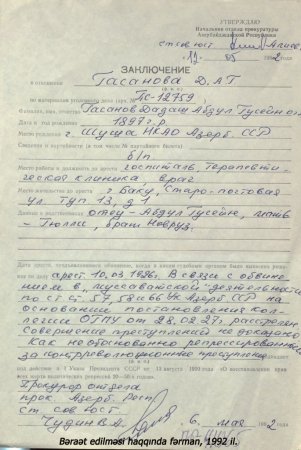 УТВЕРЖДАЮ
Начальник отдела прокуратуры
Азербайджанской Республики
ст. сов. юст.
1992 года
ЗАКЛЮЧЕНИЕ
в отношении Гасанова Д. А. Г.
(ф. и. о.)
по материалам уголовного дела (арх. № ПС-12759
Фамилия, имя, отчество Гасанов Дадаш Абдул Гусейн оглы
Дата и год рождения 1897 г. р.
Место рождения г. Шуша НКАО Азерб. ССР
Сведения о партийности (в том числе № партийного билета)
б/п
Место работы и должность до ареста госпиталь, терапевти-
ческая клиника врач
Место жительства до ареста г. Баку, Старо-почтовая
ул. туп 13, д 1
Данные о родственниках отец - Абдул Гусейн,
брат Новруз.
арест 10.03.1926. В связи с обвине-
нием в "муссаватской" деятельности
по ст ст. 57, 58 и 66 УК Азерб. ССР на
основании постановления кол-
легии ОГПУ от 28.02.27 г. расстрелян
Совершение преступлений не доказано
Как необоснованно репрессированный
за контрреволюционные преступления
Прокурор отдела
прок. Азерб. Респ.
ст. сов. юст.
Чудин В А.
6. мая 1992 г
Bəraət edilməsi haqqında fərman, 1992 il.